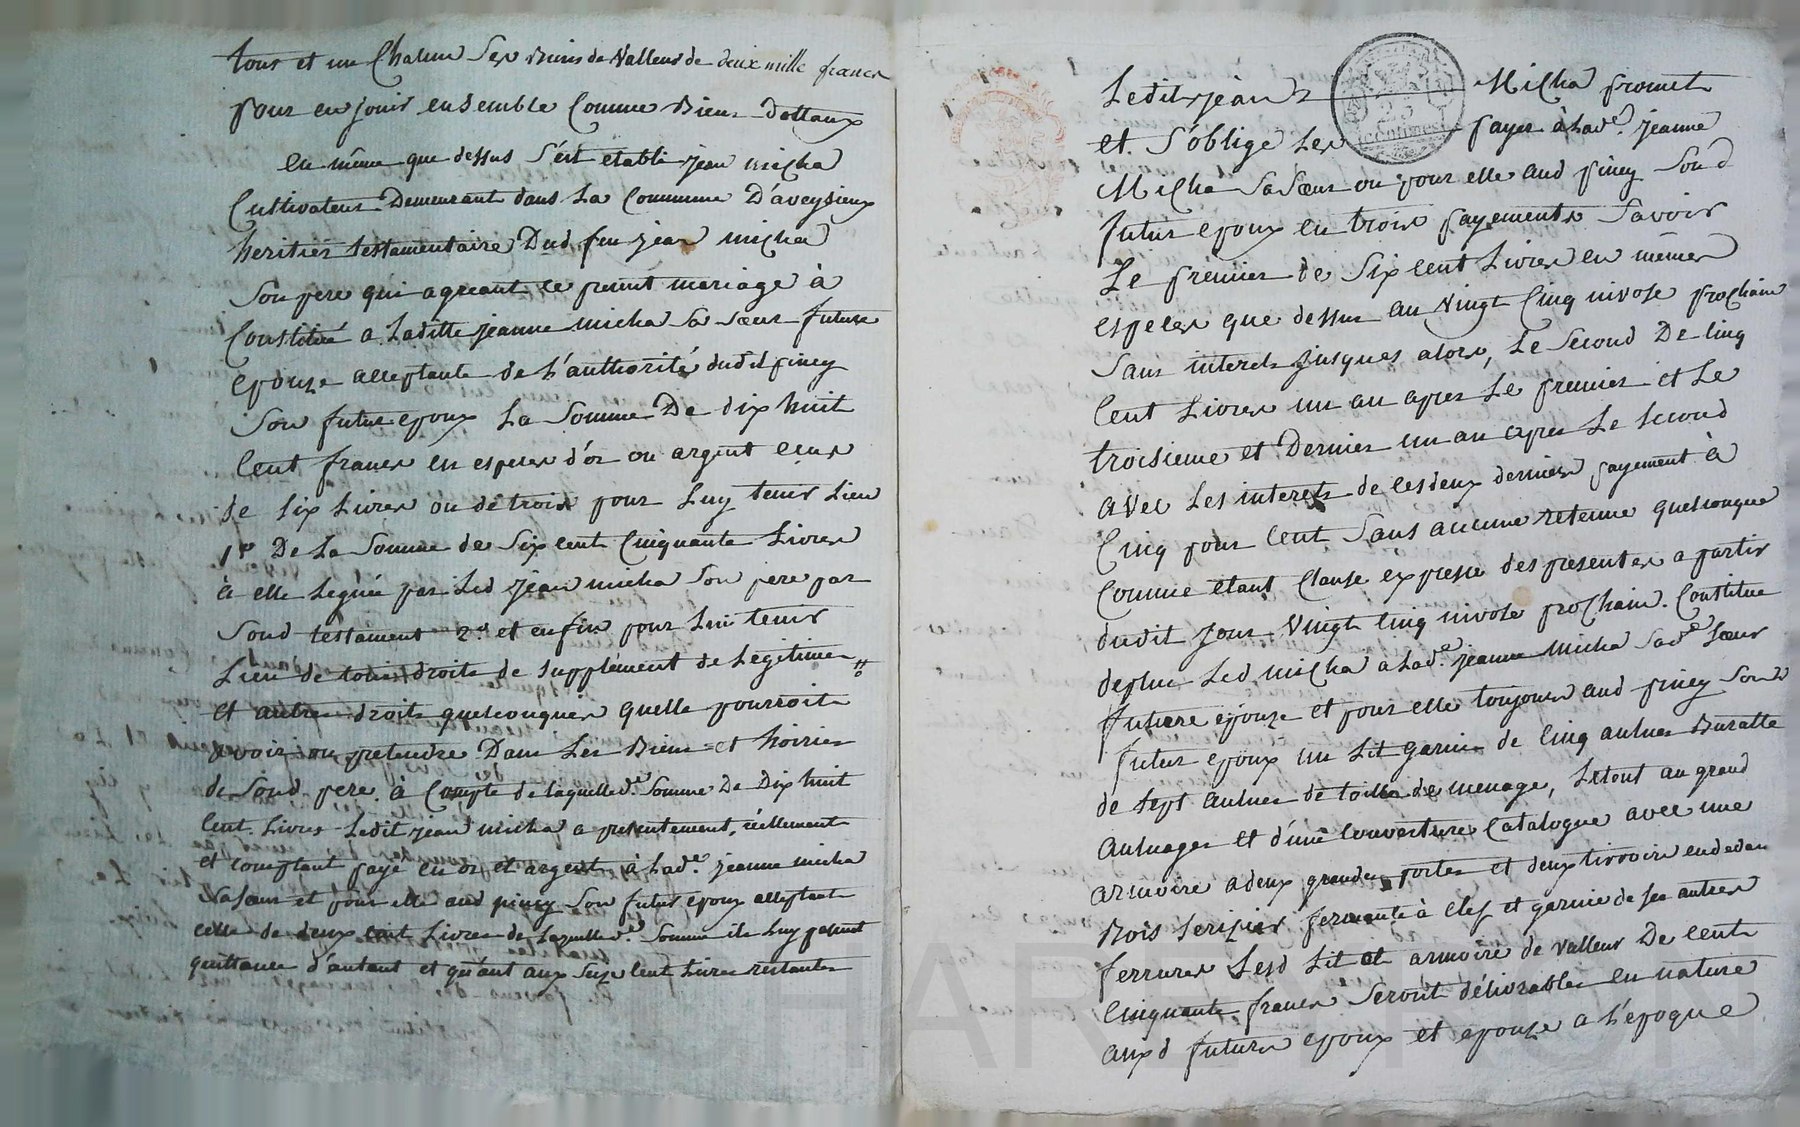 tous et un Chalun Ses Biens de Valleur de deux mille francs
pour en jouir ensemble Comme Biens Dottaux
en même que dessus S'est etabli jean micha
Cultivateur Demeurant dans La Commune D'aveysieux
heritier testamentaire Dud feu jean micha
Son pere qui agreant ce present mariage à
Constitué a Laditte jeanne micha Sa Sœur future
epouze acceptante de L'authorité dudit piney
Son futur epoux La Somme De dix huit
Cent francs en especes d'or ou argent ecus
de Six Livres ou de trois pour Luy tenir Lieu
1º De La Somme de Six cent Cinquante Livres
à elle Leguée par Led jean micha Son pere par
Sond testament 2º et enfin pour Lui tenir
Lieu de tous droits de Supplement de Legitime
et autres droits quelconques quelle pourroit
avoir ou pretendre Dans Les Biens et hoiries
de Sond. pere. à Compte de laquelle de. Somme De Dix huit
Cent Livres Ledit jean micha a presentement, réellement
et comptant payé en or et argent à Lade. jeanne micha
Sa Sœur et pour elle aud piney Son futur epoux acceptant
celle de deux cent Livres de Laquelle de. Somme ils Luy passent
quittance d'autant et quant aux Seze Cent Livres restantes
Ledit jean Micha promet
et S'oblige Les payer à Lade. jeanne
Micha Sa Sœur ou pour elle aud piney Sond
futur epoux en trois payements Savoir
Le premier de Six cent Livres en mêmes
especes que dessus au Vingt Cinq nivose prochain
Sans interets jusques alors, Le Second De Cinq
Cent Livres un an apres Le premier et Le
troisieme et Dernier un an apres Le Second
avec Les interets de Ces deux derniers payement à
Cinq pour Cent Sans aucune retenue quelconque
Comme etant Clause expresse des presentes a partir
dudit jour Vingt Cinq nivose prochain. Constitue
deplus Led micha a Lade. jeanne micha Sade Sœur
future epouze et pour elle toujours aud piney Sond
futur epoux un Lit garni de Cinq aulnes Buratte
de Sept aulnes de toille de menage, Le tout au grand
aulnages et d'une Couverture Catalogue avec une
armoire a deux grandes portes et deux tirroirs en dedans
Bois Serizier fermante à Clef et garnie de Ses autres
ferrures Lesd Lit et armoire de valleur De Cent
Cinquante francs Seront délivrables en nature
auxd futurs epoux et epouze a L'époque